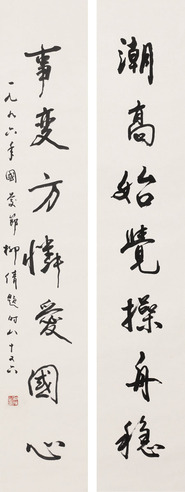 潮高始覺操舟穩
事變方憐愛國心
一九九六年國慶節柳倩題時八十又六